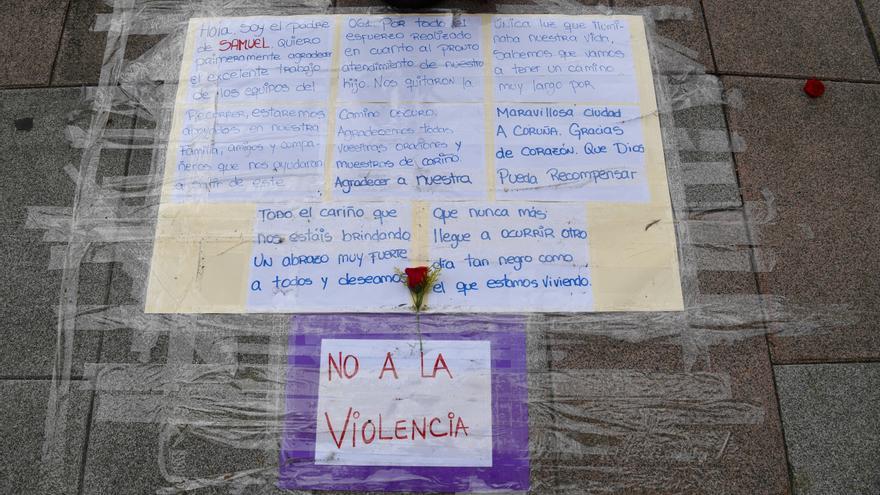 Hola, soy el padre
de SAMUEL, quiero
primeramente agradecer
el excelente trabajo
de los equipos del
061. Por todo el
esfuerzo realizado
en cuanto al pronto
atendimento de nuestro
hijo. Nos quitaron la
única luz que iluminaba
nuestra vida,
Sabemos que vamos
a tener un camino
muy largo por
Recorrer, estaremos
apoyados en nuestra
familia, amigos y compa-
ñeros que nos ayudaran
a salir de este
Camino oscuro.
Agradecemos todas
vuestras oraciones y
muestras de cariño.
Agradecer a nuestra
Maravillosa ciudad
A CORUÑA. Gracias
de corazón. Que Dios
Pueda Recompensar
Todo el cariño que
nos estáis brindando
Un abrazo muy fuerte
a todos y deseamos
Que nunca más
llegue a ocurrir otro
día tan negro como
el que estamos viviendo.
NO A LA
VIOLENCIA